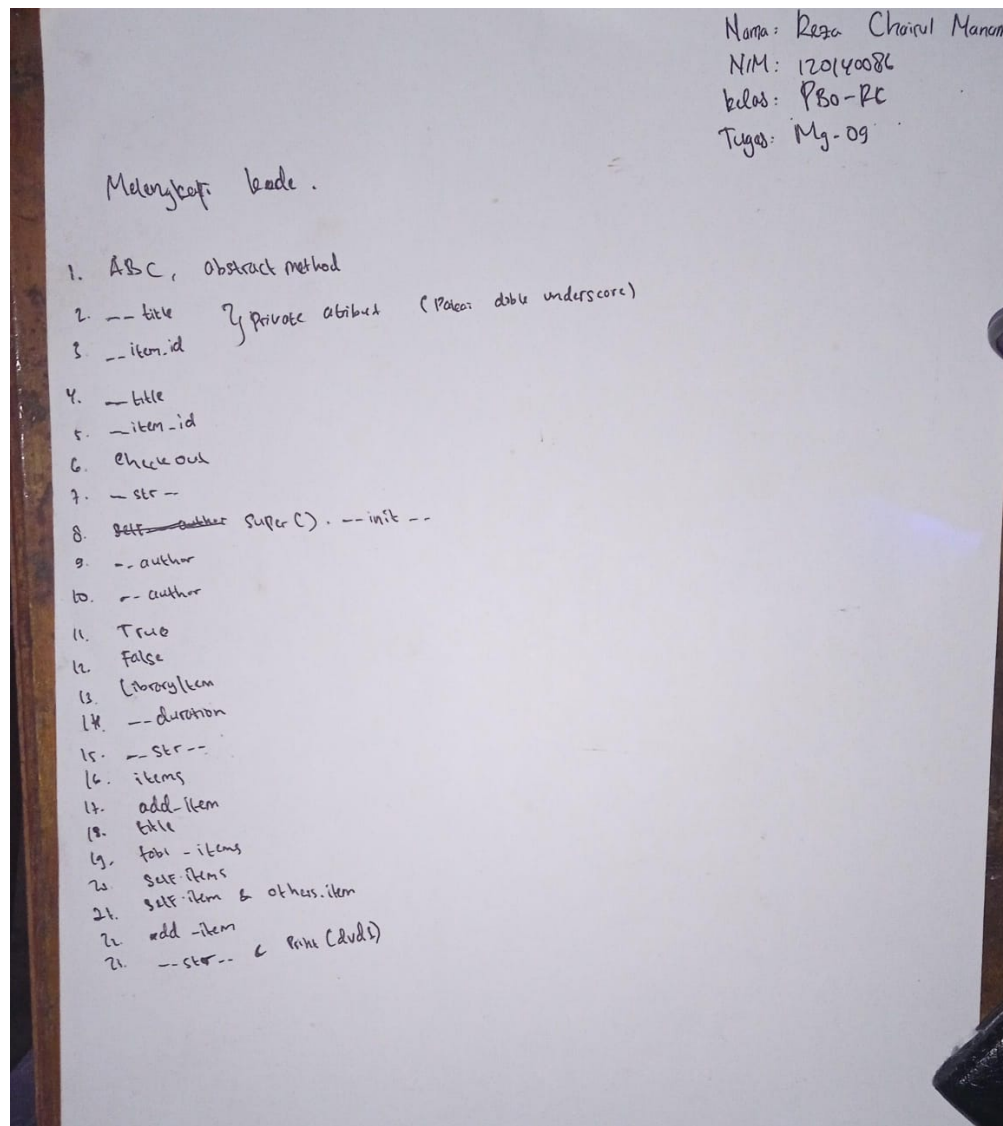 Nama: Reza Chairul Manam
NIM: 120140086
kelas: PBO-RC
Tugas: Mg-09
Melengkapi kode.
1. ABC, abstract method
2. -- title } private atribut (Pakai doble underscore)
3 --item_id
4. --title
5. --item-id
6. Check out
7. -- str --
8. self --author super().--init--
9. --author
10. --author
11. True
12. False
13. LibraryItem
14. --duration
15. --str--
16. items
17. add-item
18. title
19. -items
20. self.items
21. self.item & others.item
22. add -item
--str-- & Print(dvd1)